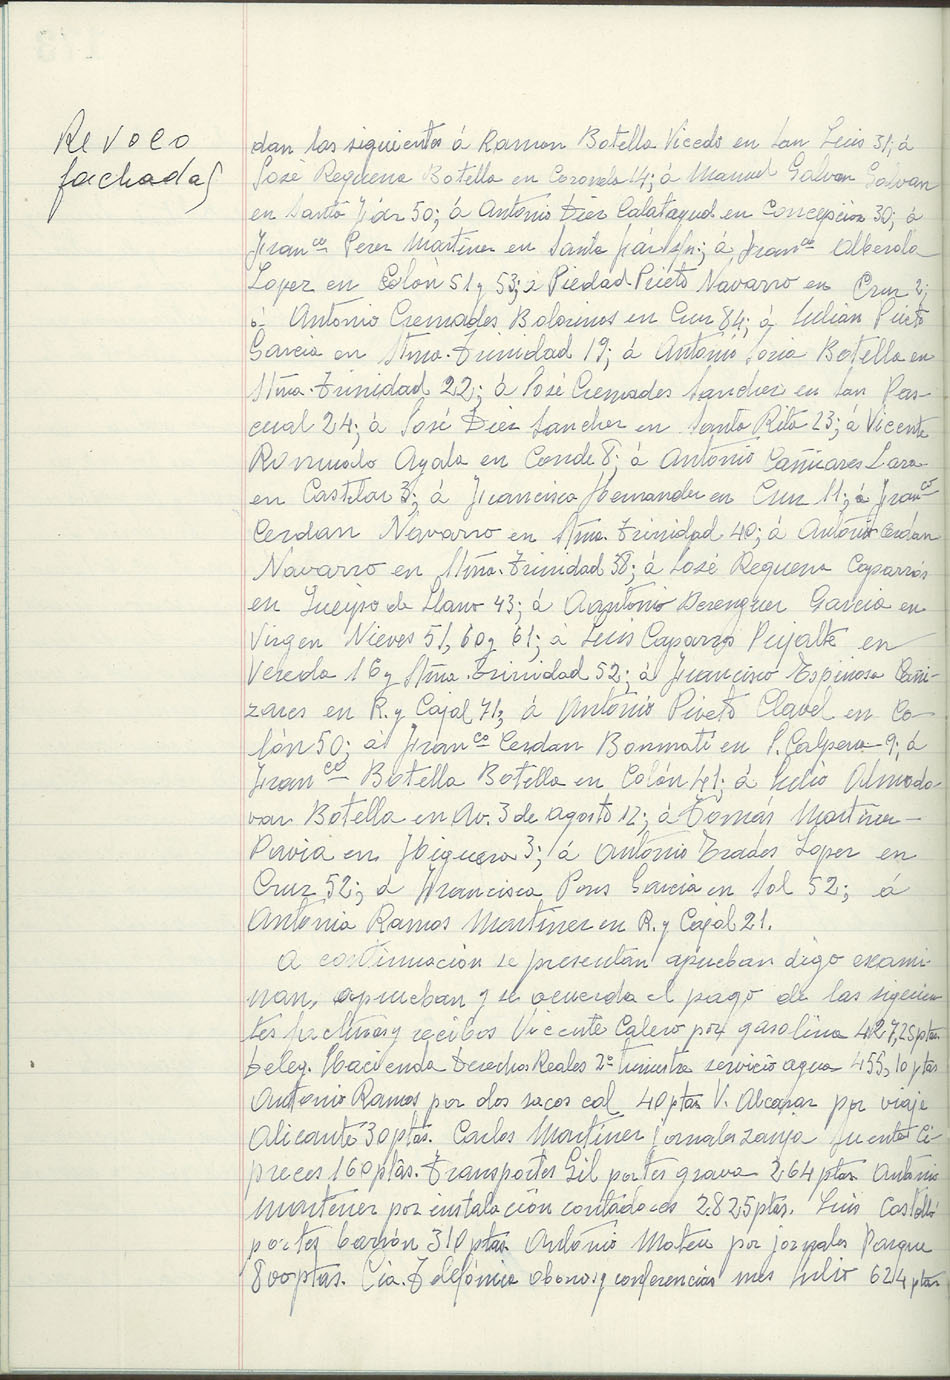 Revoco
fachadas
dan los siguientes á Ramon Botella Vicedo en San Luis 31; á
José Requena Botella en Coronda 14; á Manuel Galvan Galvan
en Santa Faz 50; á Antonio Diez Calatayud en Concepcion 30; á
Franco Perez Martinez en Santa Faz s/n; á Franco Alberola
Lopez en Colón 51 y 53; á Piedad Prieto Navarro en Cruz 2;
á Antonio Cremades Bolorinos en Cruz 84; á Julian Prieto
Garcia en Stma. Trinidad 19; á Antonio Soria Botella en
Stma. Trinidad 22; á José Cremades Sanchez en San Pas-
cual 24; á José Diez Sanchez en Santa Rita 23; á Vicente
Romualdo Ayala en Conde 8; á Antonio Cañizares Lara
en Castelar 3; á Francisca Hernandez en Cruz 11; á Franco
Cerdan Navarro en Stma. Trinidad 40; á Antonio Cerdan
Navarro en Stma. Trinidad 38; á José Requena Caparrós
en Queipo de Llano 43; á Aantonio Berenguer Garcia en
Virgen Nieves 51, 60 y 61; á Luis Caparros Pujalte en
Vereda 16 y Stma. Trinidad 52; á Francisco Espinosa Cañi-
zares en R. y Cajal 71; á Antonio Piveto Clavel en Co-
lón 50; á Franco Cerdan Bonmatí en P. Calpena 9; á
Franco Botella Botella en Colón 41; á Julio Almodo-
var Botella en Av. 3 de agosto 12; á Tomás Martinez
Pavia en Higuera 3; á Antonio Erades Lopez en
Cruz 52; á Francisca Pons Garcia en Sol 52; á
Antonia Ramos Martinez en R. y Cajal 21.
A continuación se presentan aprueban digo exami-
nan, aprueban y se acuerda el pago de las sigeien-
tes facturas y recibos Vicente Calero por gasolina 427,25 ptas.
Deleg. Hacienda Derechos Reales 2º trimestre servicio agua 455,10 ptas
Antonio Ramos por dos sacos cal 40 ptas V. Alcazar por viaje
Alicante 30 ptas. Carlos Martinez jornales zanja fuente Ci-
preces 160 ptas. Transportes Gil portes grava 264 ptas. Antonio
Martenez por instalación contadores 2.825 ptas. Luis Castelló
portes barrón 310 ptas. Antonio Mateu por jornales Parque
800 ptas. Cia. Telefónica abonos y conferencias mes Julio 624 ptas